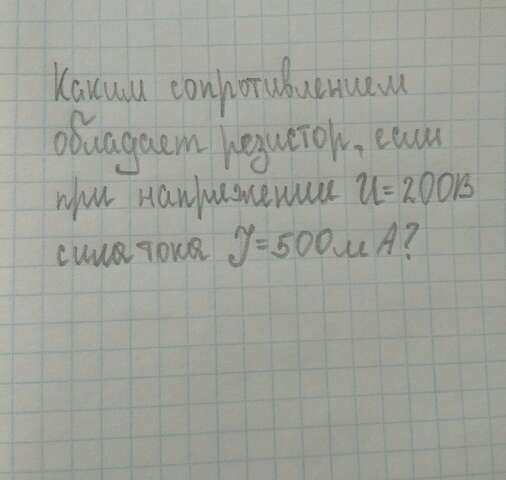 Каким сопротивлением
обладает резистор, если
при напряжении U=200В
сила тока I=500мА?